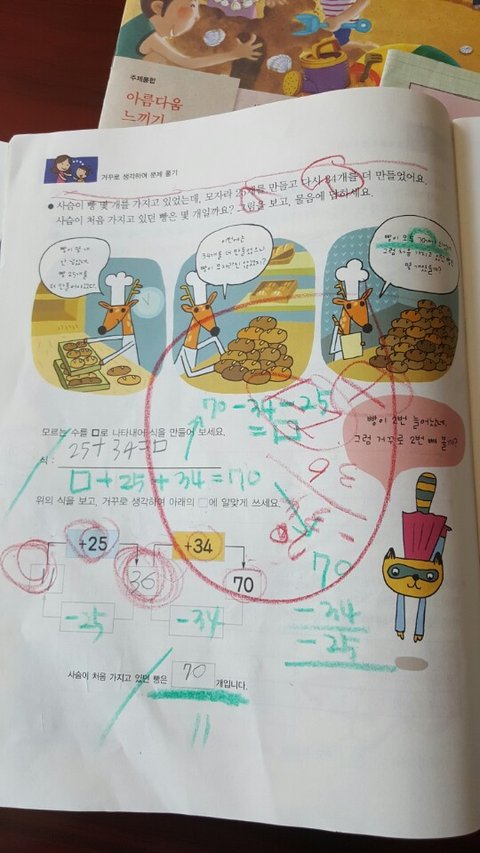 주제통합
아름다움
느끼기
거꾸로 생각하여 문제 풀기
• 사슴이 빵 몇 개를 가지고 있었는데, 모자라 25개를 만들고 다시 34개를 더 만들었어요.
사슴이 처음 가지고 있던 빵은 몇 개일까요? 그림을 보고, 물음에 답하세요.
빵이 몇 개
안 남았네.
빵 25개를
더 만들어야겠다.
이번에는
34개를 더 만들었으니
빵이 모자라진 않겠지?
빵이 모두 70개가
그럼 처음 가지고 있던 빵은
몇 개였을까?
70-34-25
=□
모르는 수를 □로 나타내어 식을 만들어 보세요.
식 : 25+34=□
□+25+34=70
빵이 2번 늘어났네.
그럼 거꾸로 2번 빼 볼까?
36
위의 식을 보고, 거꾸로 생각하여 아래의 □에 알맞게 쓰세요.
+25
+34
11
36
70
-25
-34
70
-34
-25
사슴이 처음 가지고 있던 빵은 70 개입니다.
11